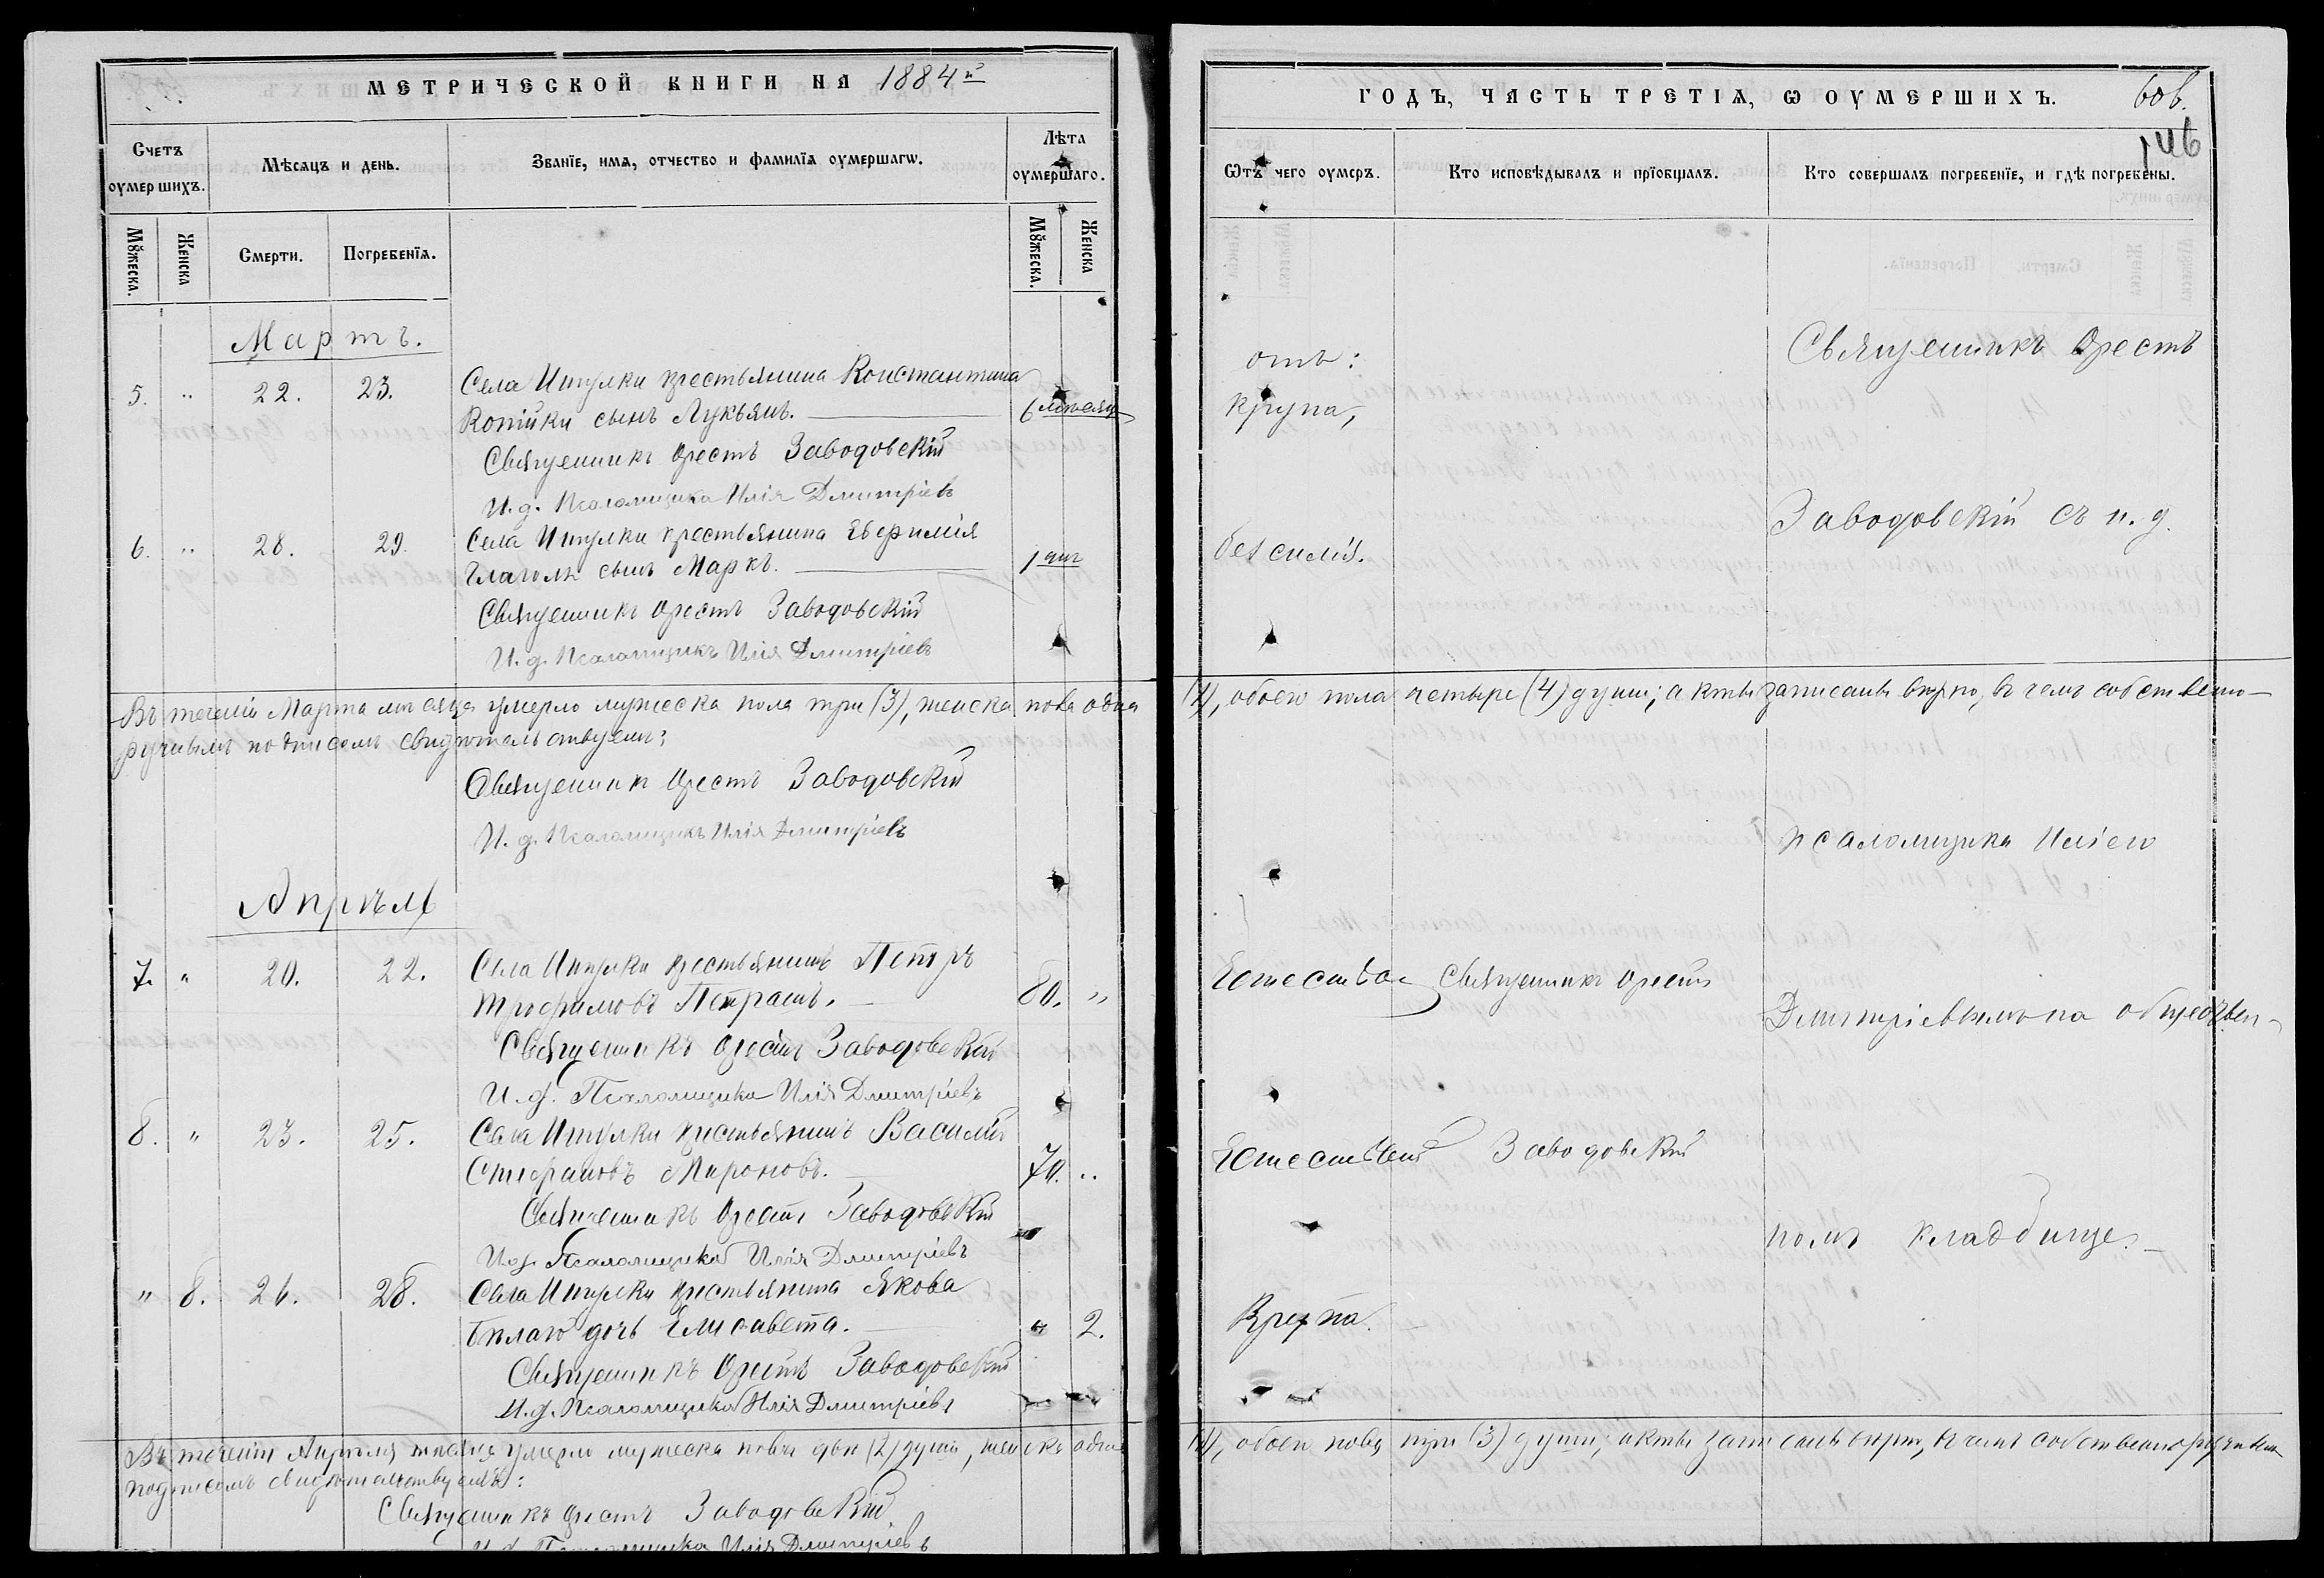 МЕТРИЧЕСКОЙ КНИГИ НА 1884й
Счетъ оумершихъ.
Мѣсяцъ и день.
Званїе, имя, отчество и фамилїя оумершагѡ.
Лѣта оумершаго.
Мꙋжеска.
Женска
Смерти.
Погребенїя.
Мꙋжеска.
Женска
Мартъ.
5. " 22. 23. Села Шпулки крестьянина Константина
Копійки сынъ Лукьянъ. 6 месяц
Священникъ Орестъ Заводовскій
И. д. Псаломщика Илія Дмитріевъ
6. " 28. 29. Села Шпулки крестьянина Евфимія
сынъ Маркъ. 1
Священникъ Орестъ Заводовскій
И. д. Псаломщикъ Илія Дмитріевъ
Въ теченіи Марта месяца умерло мужеска пола три (3), женска пола одна
ручнымъ подписомъ свидѣтельствуемъ:
Священникъ Орестъ Заводовскій
И. д. Псаломщикъ Илія Дмитріевъ
Апрѣль
7. " 20. 22. Села Шпулки крестьянинъ Петръ
Трофимовъ Петрашъ. 80. "
Священникъ Орестъ Заводовскій
И. д. Псаломщика Илія Дмитріевъ
8. " 23. 25. Села Шпулки крестьянинъ Василій
Стефановъ Мироновъ. 70. "
Священникъ Орестъ Заводовскій
И. д. Псаломщика Илія Дмитріевъ
" 8. 26. 28. Села Шпулки крестьянина Якова
дочь Елисавета. " 2.
Священникъ Орестъ Заводовскій
И. д. Псаломщика Илія Дмитріевъ
Въ теченіи Апрѣля месяца умерло мужеска пола два (2) души, женска одна
подписомъ свидѣтельствуемъ:
Священникъ Орестъ Заводовскій
И. д. Псаломщика Илія Дмитріевъ
ГОДЪ, ЧАСТЬ ТРЕТІЯ, Ѡ ОУМЕРШИХЪ.
146
Ѿтъ чего оумеръ.
Кто исповѣдывалъ и прїобщалъ.
Кто совершалъ погребенїе, и гдѣ погребены.
отъ:
Священникъ Орестъ
крупа,
Заводовскій съ и. д.
безсилія.
(1), обоего пола четыре (4) души; акты записаны вѣрно, въ чемъ собственно-
псаломщика Иліею
Священникъ Орестъ
Дмитріевымъ на обществен-
Заводовскій
номъ кладбище.
Крупа.
(1), обоего пола три (3) души; акты записаны вѣрно, въ чемъ собственноручнымъ